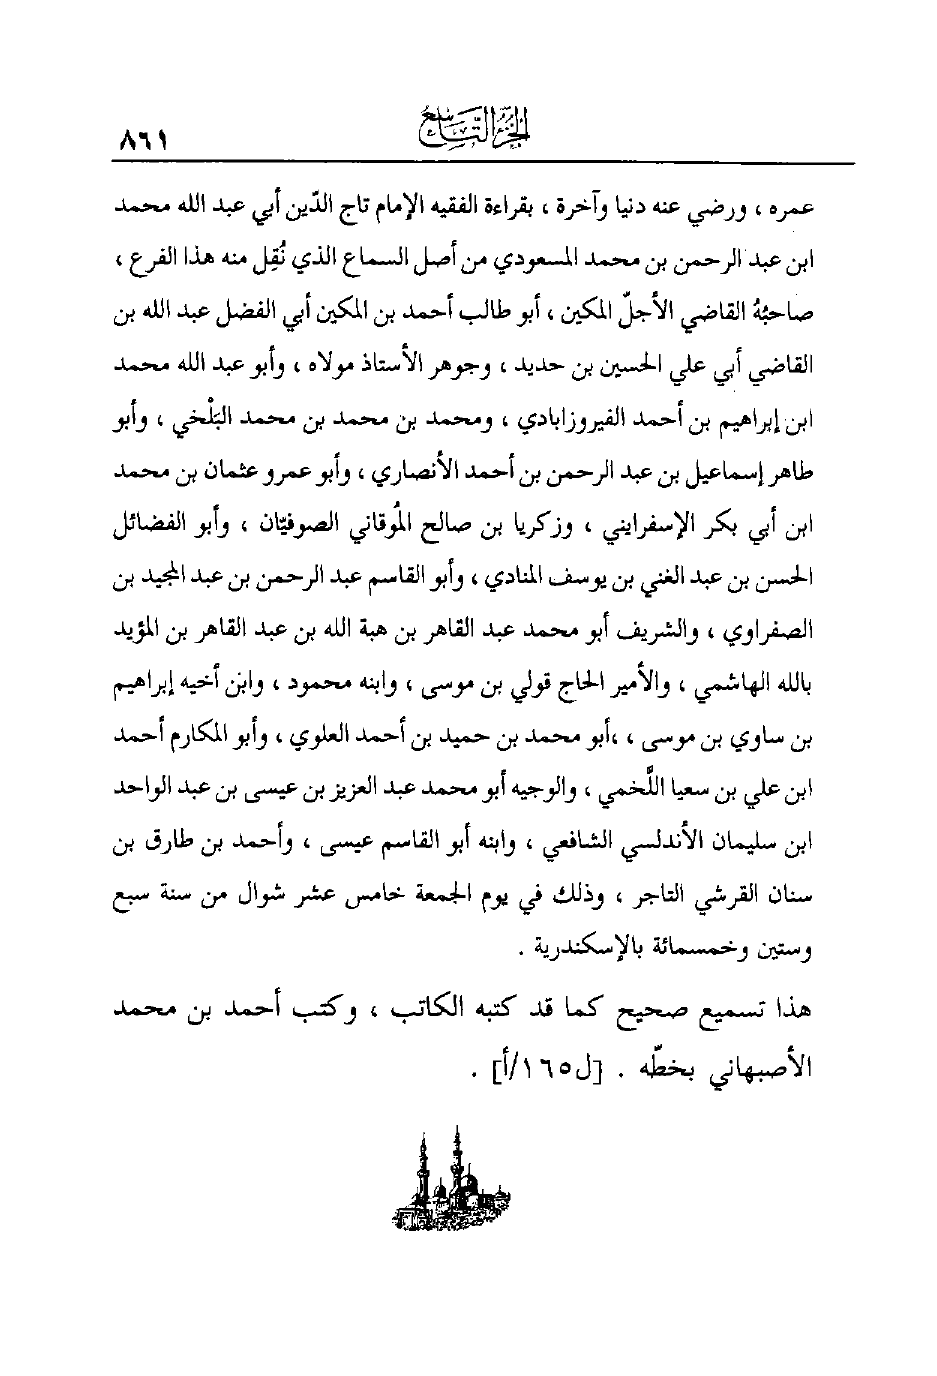 الجزء التاسع
٨٦١
عمره ، ورضي عنه دنيا وآخرة ، بقراءة الفقيه الإمام تاج الدّين أبي عبد الله محمد
ابن عبد الرحمن بن محمد المسعودي من أصل السماع الذي نُقِل منه هذا الفرع ،
صاحبُهُ القاضي الأجلّ المكين ، أبو طالب أحمد بن المكين أبي الفضل عبد الله بن
القاضي أبي علي الحسين بن حديد ، وجوهر الأستاذ مولاه ، وأبو عبد الله محمد
ابن إبراهيم بن أحمد الفيروزابادي ، ومحمد بن محمد بن محمد البَلْخي ، وأبو
طاهر إسماعيل بن عبد الرحمن بن أحمد الأنصاري ، وأبو عمرو عثمان بن محمد
ابن أبي بكر الإسفرايني ، وزكريا بن صالح المُوقاني الصوفيّان ، وأبو الفضائل
الحسن بن عبد الغني بن يوسف المنادي ، وأبو القاسم عبد الرحمن بن عبد المجيد بن
الصفراوي ، والشريف أبو محمد عبد القاهر بن هبة الله بن عبد القاهر بن المؤيد
بالله الهاشمي ، والأمير الحاج قولي بن موسى ، وابنه محمود ، وابن أخيه إبراهيم
بن ساوي بن موسى ، ،أبو محمد بن حميد بن أحمد العلوي ، وأبو المكارم أحمد
ابن علي بن سعيا اللَّخمي ، والوجيه أبو محمد عبد العزيز بن عيسى بن عبد الواحد
ابن سليمان الأندلسي الشافعي ، وابنه أبو القاسم عيسى ، وأحمد بن طارق بن
سنان القرشي التاجر ، وذلك في يوم الجمعة خامس عشر شوال من سنة سبع
وستين وخمسمائة بالإسكندرية .
هذا تسميع صحيح كما قد كتبه الكاتب ، وكتب أحمد بن محمد
الأصبهاني بخطّه . [ل١٦٥/أ] .